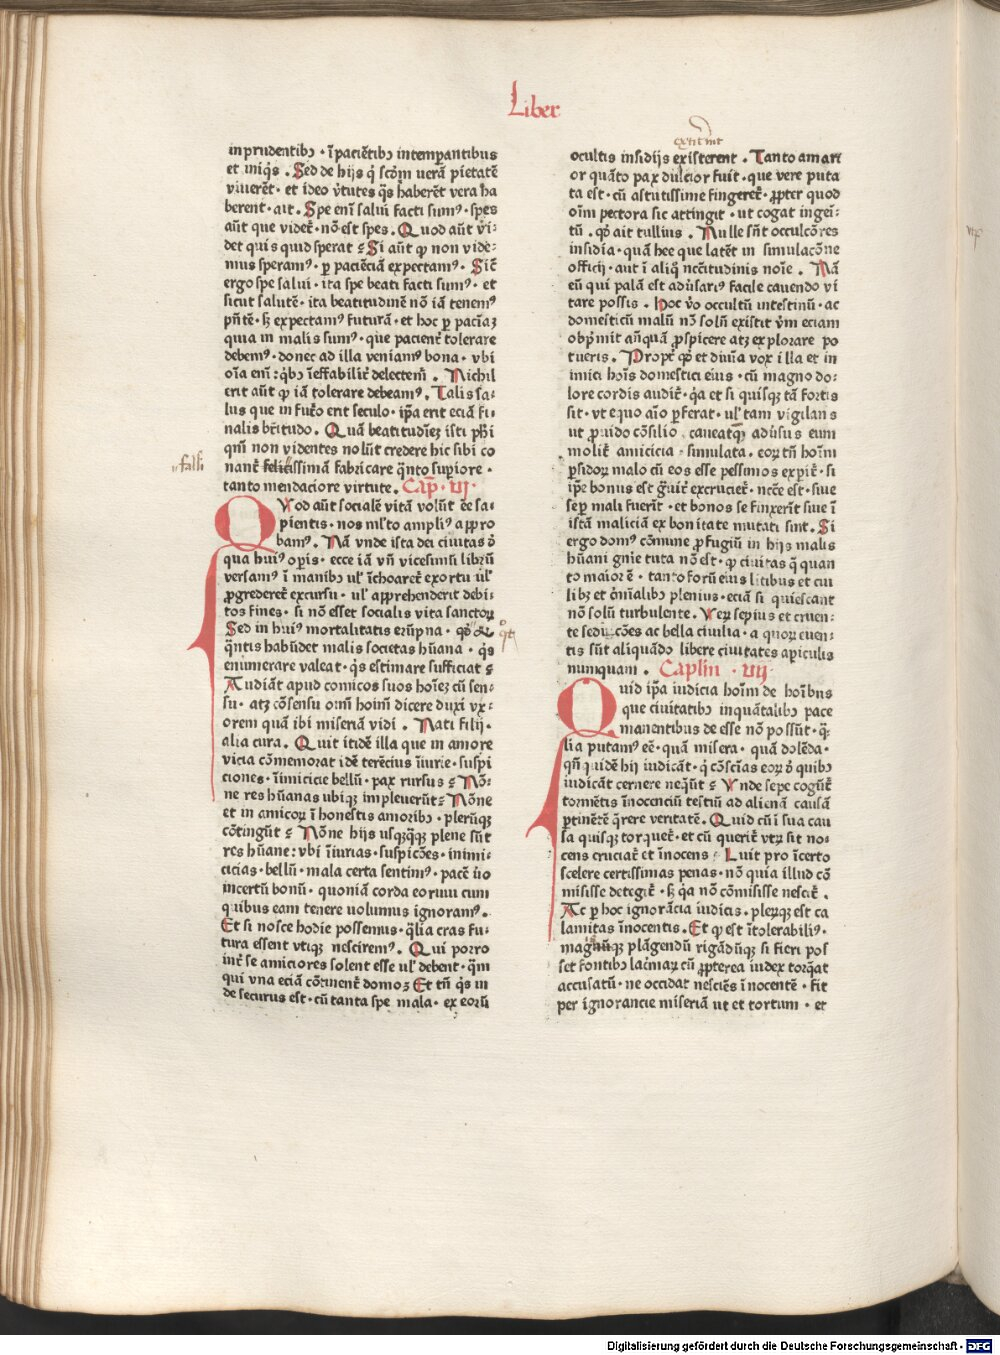 Liber
inprudentibꝫ · ĩpaciētibꝫ intemꝑantibus
et iniq̃s . Sed de hijs q̃ scd̃m uerā pietatē
viuerēt · et ideo v̓tutes q̃s haberēt vera ha
berent · ait . Spe enĩ salui facti sumꝰ · spes
aũt que videt̃ · nō est spes . Quod aũt vi-
det quis quid sperat ? Si aũt ꝙ non vide-
mus speramꝰ · ꝑ paciēciā expectamꝰ . Sic̃
ergo spe salui · ita spe beati facti sumꝰ · et
sicut salutē · ita beatitudinē nō iā tenemꝰ
pñtē · sꝫ expectamꝰ futurā · et hoc ꝑ paciaꝫ
quia in malis sumꝰ · que pacient̃ tolerare
debemꝰ · donec ad illa veniamꝰ bona · vbi
oĩa enĩ : q̃bꝫ ĩeffabilit̃ delectem̃ . Nichil
erit aũt ꝙ iā tolerare debeamꝰ . Talis sa-
lus que in fut̃o erit seculo · ip̃a erit eciā fi-
nalis bt̃itudo . Quā beatitudĩeꝫ isti ph̃i
qm̃ non videntes nolũt credere hic sibi co
falsi
nant̃ felicissimā fabricare q̃nto supiore ·
tanto mendaciore virtute . Cap̃ · vj ·
Qvod aũt socialē vitā volũt ẽe sa-
pientis · nos ml̃to ampliꝰ appro
bamꝰ . Nā vnde ista dei ciuitas d̓
qua huiꝰ oꝑis · ecce iā vñ vicesimũ librũ
versamꝰ ĩ manibꝫ ul̓ ĩchoaret̃ exortu ul̓
ꝓgrederet̃ excursu · ul̓ apprehenderit debi-
tos fines · si nō esset socialis vita sanctoꝝ
Sed in huiꝰ mortalitatis erũpna · qd̓ &
q̃ntis habũdet malis societas hũana · q̃s
enumerare valeat · q̃s estimare sufficiat ?
Audiāt apud comicos suos hoĩeꝫ cũ sen-
su · atꝫ cōsensu om̃ hoim̃ dicere duxi vx-
orem quā ibi miseriā vidi . Nati filij ·
alia cura . Quit itidē illa que in amore
vicia cōmemorat idē terēcius ĩiurie · suspi
ciones · ĩimicicie bellũ · pax rursus ? Nō-
ne res hũanas ubiqꝫ impleuerũt ? Nōne
et in amicoꝝ ĩ honestis amoribꝫ · pleruqꝫ
cōtingũt ? Nōne hijs usqꝫq̃qꝫ plene sũt
res hũane : vbi ĩiurias · suspicōes · inimi-
cicias · bellũ · mala certa sentimꝰ · pacē v̓o
incertũ bonũ · quoniā corda eorum cum
quibus eam tenere uolumus ignoramꝰ .
Et si nosce hodie possemus · q̃lia cras fu-
tura essent vtiqꝫ nesciremꝰ . Qui porro
int̃ se amiciores solent esse ul̓ debent · q̃m
qui vna eciā cōtinent̃ domoꝫ Et tñ q̃s in
de securus est · cũ tanta spe mala · ex eorũ
ocultis insidijs existerent . Tanto amari
or quāto pax dulcior fuit · que vere puta
ta est · cũ astutissime fingeret̃ · ꝓpter quod
oĩm pectora sic attingit · ut cogat ingeĩ-
tũ . qd̓ ait tullius . Nulle sñt occulcōres
insidia · quā hee que latēt in simulacōne
officij · aut ĩ aliq̃ nc̃c̃itudinis noĩe . Nā
eũ qui palā est adũsariꝰ facile cauendo vi
tare possis . hoc v̓o occultũ intestinũ · ac
domesticũ malũ nō solũ existit v̓m eciam
obp̃mit añquā ꝓspicere atꝫ explorare po
tueris . Propt̃ qd̓ et diuĩa vox illa et in
imici hoĩs domestici eius · cũ magno do-
lore cordis audit̃ · q̃a et si quisqꝫ tā fortis
sit · vt equo aĩo ꝑferat · ul̓ tam vigilans
ut ꝓuido cōsilio caueatq̃ adũsus eum
molit̃ amicicia · simulata . eoꝝ tñ hoĩm
ꝑfidoꝝ malo cũ eos esse pessimos expit̃ · si
ip̃e bonus est g̃uit̃ excruciet̃ · ncc̃e est · siue
semp̃ mali fuerĩt · et bonos se finxerĩt siue ĩ
istā maliciā ex bonitate mutati sint . Si
ergo domꝰ cōmune ꝓfugiũ in hijs malis
hũani gñis tuta nō est · ꝙ ciuitas q̃ quan
to maior ē · tanto forũ eius litibus et ciui
libꝫ et c̃mĩalibꝫ plenius · eciā si quiescant
nō solũ turbulente . Veꝝ sepius et cruen-
te sedicōes ac bella ciuilia · a quoꝝ euen-
tis sũt aliquādo libere ciuitates aꝑiculis
nunquam . Caplm̃ · vij ·
Quid ip̃a iudicia hoĩm de hoĩbus
que ciuitatibꝫ inquātalibꝫ pace
manentibus de esse nō possũt · q̃-
lia putamꝰ eē · quā misera · quā dolēda ·
qñ quidē hij iudicāt · q̃ cōsciẽas eoꝝ d̓ quibꝫ
iudicāt cernere neq̃ũt ? Vnde sepe cogũt̃
tormētis ĩnocenciũ testiũ ad alienā causā
ꝑtinētē q̃rere veritatē . Quid cũ ĩ sua cau
sa quisqꝫ torquet̃ · et cũ querit̃ vtꝝ sit no-
cens cruciat̃ et ĩnocens : Luit pro ĩcerto
scelere certissimas penas · nō quia illud cō
misisse detegit̃ · sꝫ q̃a nō cōmisisse nescit̃ .
Ac ꝑ hoc ignorācia iudicis · pleꝝqꝫ est ca
lamitas ĩnocentis . Et ꝙ est ĩtolerabiliꝰ ·
magisqꝫ plāgendũ rigādũqꝫ si fieri pos
set fontibꝫ lac̃maꝝ cũ ꝓpterea iudex torq̃at
accusatũ · ne occidat nesciēs ĩnocentē · fit
per ignorancie miseriā ut et tortum · et